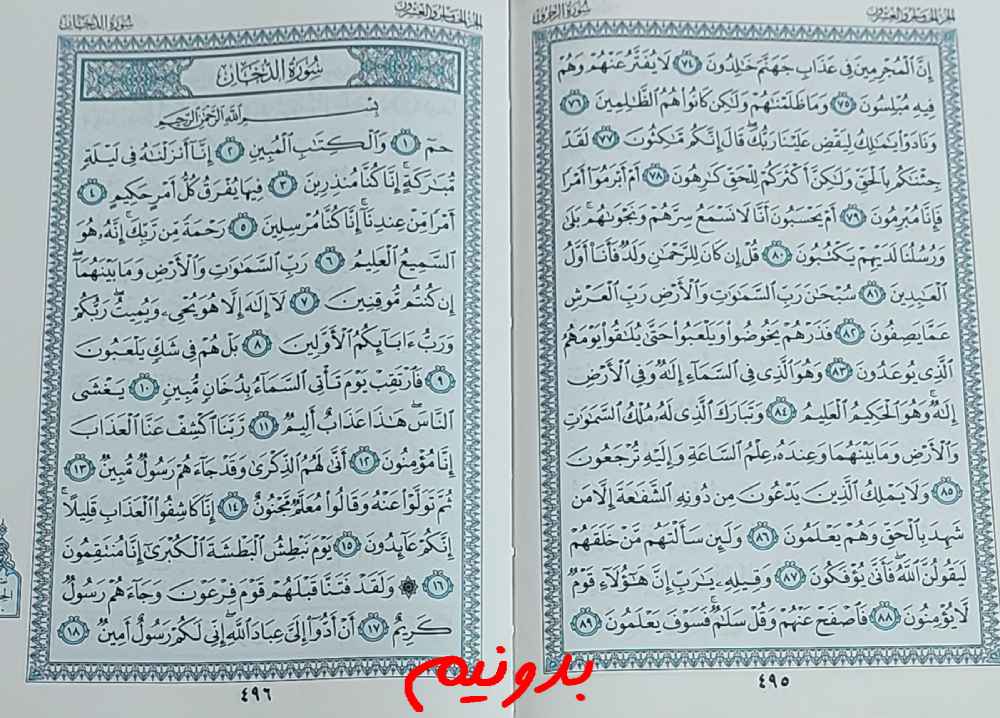 الجزء الخامس والعشرون
سورة الزخرف
إِنَّ الْمُجْرِمِينَ فِي عَذَابِ جَهَنَّمَ خَالِدُونَ ٧٤ لَا يُفَتَّرُ عَنْهُمْ وَهُمْ
فِيهِ مُبْلِسُونَ ٧٥ وَمَا ظَلَمْنَاهُمْ وَلَٰكِن كَانُوا هُمُ الظَّالِمِينَ ٧٦
وَنَادَوْا يَا مَالِكُ لِيَقْضِ عَلَيْنَا رَبُّكَ ۖ قَالَ إِنَّكُم مَّاكِثُونَ ٧٧ لَقَدْ
جِئْنَاكُم بِالْحَقِّ وَلَٰكِنَّ أَكْثَرَكُمْ لِلْحَقِّ كَارِهُونَ ٧٨ أَمْ أَبْرَمُوا أَمْرًا
فَإِنَّا مُبْرِمُونَ ٧٩ أَمْ يَحْسَبُونَ أَنَّا لَا نَسْمَعُ سِرَّهُمْ وَنَجْوَاهُم ۚ بَلَىٰ
وَرُسُلُنَا لَدَيْهِمْ يَكْتُبُونَ ٨٠ قُلْ إِن كَانَ لِلرَّحْمَٰنِ وَلَدٌ فَأَنَا أَوَّلُ
الْعَابِدِينَ ٨١ سُبْحَانَ رَبِّ السَّمَاوَاتِ وَالْأَرْضِ رَبِّ الْعَرْشِ
عَمَّا يَصِفُونَ ٨٢ فَذَرْهُمْ يَخُوضُوا وَيَلْعَبُوا حَتَّىٰ يُلَاقُوا يَوْمَهُمُ
الَّذِي يُوعَدُونَ ٨٣ وَهُوَ الَّذِي فِي السَّمَاءِ إِلَٰهٌ وَفِي الْأَرْضِ
إِلَٰهٌ ۚ وَهُوَ الْحَكِيمُ الْعَلِيمُ ٨٤ وَتَبَارَكَ الَّذِي لَهُ مُلْكُ السَّمَاوَاتِ
وَالْأَرْضِ وَمَا بَيْنَهُمَا وَعِندَهُ عِلْمُ السَّاعَةِ وَإِلَيْهِ تُرْجَعُونَ
٨٥ وَلَا يَمْلِكُ الَّذِينَ يَدْعُونَ مِن دُونِهِ الشَّفَاعَةَ إِلَّا مَن
شَهِدَ بِالْحَقِّ وَهُمْ يَعْلَمُونَ ٨٦ وَلَئِن سَأَلْتَهُم مَّنْ خَلَقَهُمْ
لَيَقُولُنَّ اللَّهُ ۖ فَأَنَّىٰ يُؤْفَكُونَ ٨٧ وَقِيلِهِ يَا رَبِّ إِنَّ هَٰؤُلَاءِ قَوْمٌ
لَّا يُؤْمِنُونَ ٨٨ فَاصْفَحْ عَنْهُمْ وَقُلْ سَلَامٌ ۚ فَسَوْفَ يَعْلَمُونَ ٨٩
٤٩٥
الجزء الخامس والعشرون
سورة الدخان
سُورَةُ الدُّخَانِ
بِسْمِ اللَّهِ الرَّحْمَٰنِ الرَّحِيمِ
حم ١ وَالْكِتَابِ الْمُبِينِ ٢ إِنَّا أَنزَلْنَاهُ فِي لَيْلَةٍ
مُّبَارَكَةٍ ۚ إِنَّا كُنَّا مُنذِرِينَ ٣ فِيهَا يُفْرَقُ كُلُّ أَمْرٍ حَكِيمٍ ٤
أَمْرًا مِّنْ عِندِنَا ۚ إِنَّا كُنَّا مُرْسِلِينَ ٥ رَحْمَةً مِّن رَّبِّكَ ۚ إِنَّهُ هُوَ
السَّمِيعُ الْعَلِيمُ ٦ رَبِّ السَّمَاوَاتِ وَالْأَرْضِ وَمَا بَيْنَهُمَا ۖ
إِن كُنتُم مُّوقِنِينَ ٧ لَا إِلَٰهَ إِلَّا هُوَ يُحْيِي وَيُمِيتُ ۖ رَبُّكُمْ
وَرَبُّ آبَائِكُمُ الْأَوَّلِينَ ٨ بَلْ هُمْ فِي شَكٍّ يَلْعَبُونَ
٩ فَارْتَقِبْ يَوْمَ تَأْتِي السَّمَاءُ بِدُخَانٍ مُّبِينٍ ١٠ يَغْشَى
النَّاسَ ۖ هَٰذَا عَذَابٌ أَلِيمٌ ١١ رَّبَّنَا اكْشِفْ عَنَّا الْعَذَابَ
إِنَّا مُؤْمِنُونَ ١٢ أَنَّىٰ لَهُمُ الذِّكْرَىٰ وَقَدْ جَاءَهُمْ رَسُولٌ مُّبِينٌ ١٣
ثُمَّ تَوَلَّوْا عَنْهُ وَقَالُوا مُعَلَّمٌ مَّجْنُونٌ ١٤ إِنَّا كَاشِفُو الْعَذَابِ قَلِيلًا ۚ
إِنَّكُمْ عَائِدُونَ ١٥ يَوْمَ نَبْطِشُ الْبَطْشَةَ الْكُبْرَىٰ إِنَّا مُنتَقِمُونَ
١٦ ۞ وَلَقَدْ فَتَنَّا قَبْلَهُمْ قَوْمَ فِرْعَوْنَ وَجَاءَهُمْ رَسُولٌ
كَرِيمٌ ١٧ أَنْ أَدُّوا إِلَيَّ عِبَادَ اللَّهِ ۖ إِنِّي لَكُمْ رَسُولٌ أَمِينٌ ١٨
٤٩٦
بدونیم